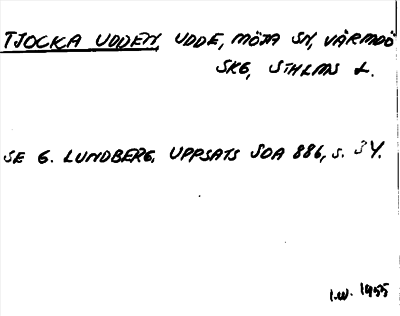 TJOCKA UDDEN, UDDE, MÖJA SN, VÄRMDÖ
SKG, STHLMS L.
SE G. LUNDBERG, UPPSATS SOA 886, S. 34.
I.W. 1955